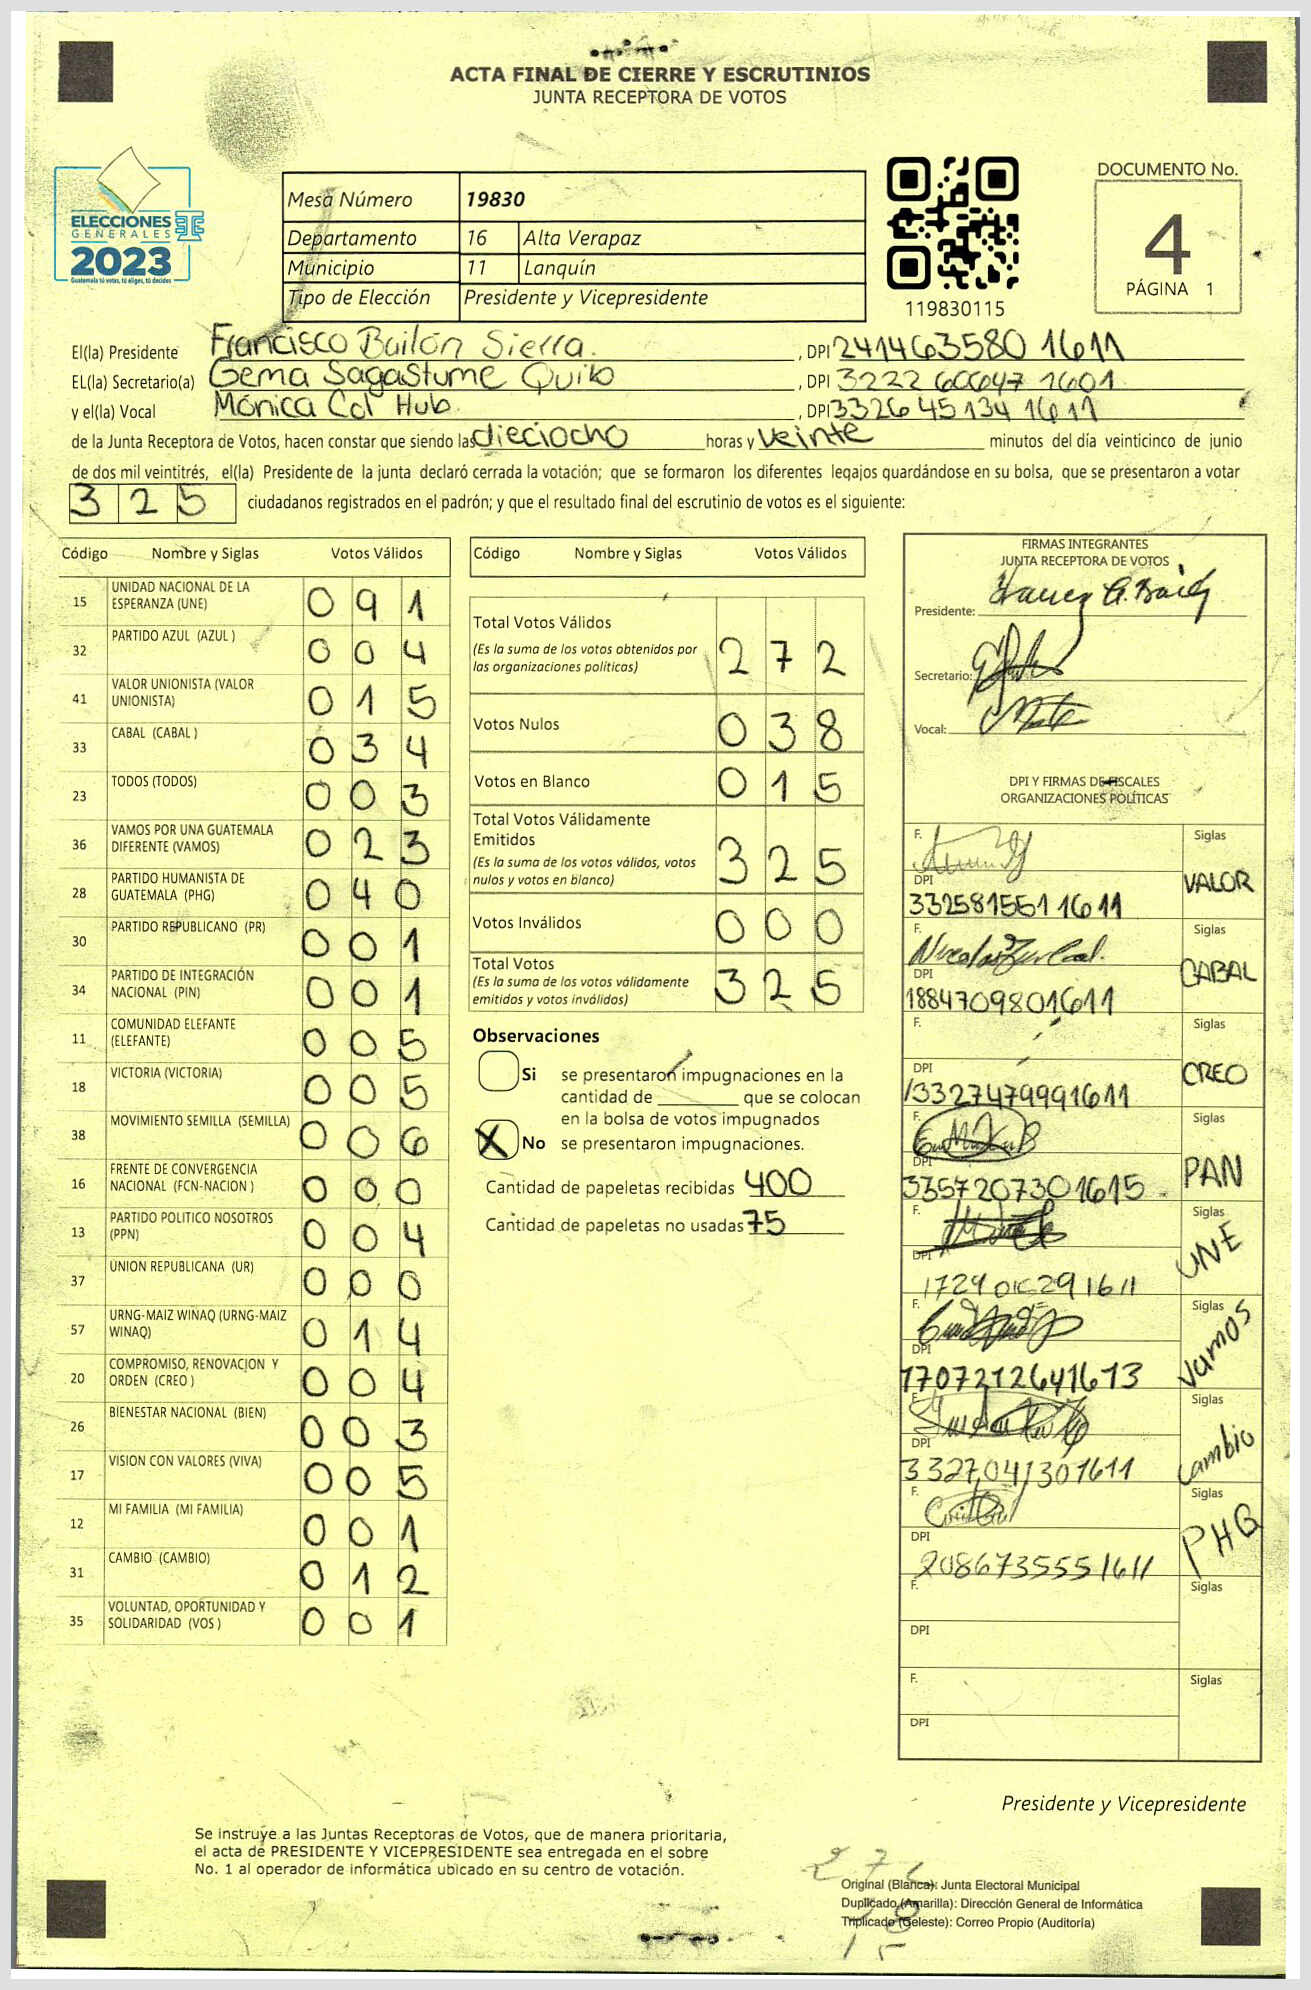 ACTA FINAL DE CIERRE Y ESCRUTINIOS
JUNTA RECEPTORA DE VOTOS
ELECCIONES
GENERALES
2023
Guatemala tú votas, tú eliges, tú decides
Mesa Número 19830
Departamento 16 Alta Verapaz
Municipio 11 Lanquín
Tipo de Elección Presidente y Vicepresidente
119830115
DOCUMENTO No.
4
PÁGINA 1
El(la) Presidente Francisco Bailón Sierra. , DPI 241463580 1611
EL(la) Secretario(a) Gema Sagastume Quib , DPI 3222 60647 1601
y el(la) Vocal Mónica Col Hub. , DPI 3326 45134 1611
de la Junta Receptora de Votos, hacen constar que siendo las dieciocho horas y veinte minutos del día veinticinco de junio
de dos mil veintitrés, el(la) Presidente de la junta declaró cerrada la votación; que se formaron los diferentes legajos guardándose en su bolsa, que se presentaron a votar
325 ciudadanos registrados en el padrón; y que el resultado final del escrutinio de votos es el siguiente:
Código Nombre y Siglas Votos Válidos
15 UNIDAD NACIONAL DE LA ESPERANZA (UNE) 091
32 PARTIDO AZUL (AZUL ) 004
41 VALOR UNIONISTA (VALOR UNIONISTA) 015
33 CABAL (CABAL ) 034
23 TODOS (TODOS) 003
36 VAMOS POR UNA GUATEMALA DIFERENTE (VAMOS) 023
28 PARTIDO HUMANISTA DE GUATEMALA (PHG) 040
30 PARTIDO REPUBLICANO (PR) 001
34 PARTIDO DE INTEGRACIÓN NACIONAL (PIN) 001
11 COMUNIDAD ELEFANTE (ELEFANTE) 005
18 VICTORIA (VICTORIA) 005
38 MOVIMIENTO SEMILLA (SEMILLA) 006
16 FRENTE DE CONVERGENCIA NACIONAL (FCN-NACION ) 000
13 PARTIDO POLITICO NOSOTROS (PPN) 004
37 UNION REPUBLICANA (UR) 000
57 URNG-MAIZ WINAQ (URNG-MAIZ WINAQ) 014
20 COMPROMISO, RENOVACION Y ORDEN (CREO ) 004
26 BIENESTAR NACIONAL (BIEN) 003
17 VISION CON VALORES (VIVA) 005
12 MI FAMILIA (MI FAMILIA) 001
31 CAMBIO (CAMBIO) 012
35 VOLUNTAD, OPORTUNIDAD Y SOLIDARIDAD (VOS ) 001
Código Nombre y Siglas Votos Válidos
Total Votos Válidos 272
(Es la suma de los votos obtenidos por
las organizaciones políticas)
Votos Nulos 038
Votos en Blanco 015
Total Votos Válidamente
Emitidos 325
(Es la suma de los votos válidos, votos
nulos y votos en blanco)
Votos Inválidos 000
Total Votos 325
(Es la suma de los votos válidamente
emitidos y votos inválidos)
Observaciones
Si se presentaron impugnaciones en la
cantidad de ________ que se colocan
en la bolsa de votos impugnados
X No se presentaron impugnaciones.
Cantidad de papeletas recibidas 400
Cantidad de papeletas no usadas 75
FIRMAS INTEGRANTES
JUNTA RECEPTORA DE VOTOS
Presidente:
Secretario:
Vocal:
DPI Y FIRMAS DE FISCALES
ORGANIZACIONES POLÍTICAS
F. Siglas
DPI VALOR
332581551 1611
F. Siglas
DPI CABAL
1884709801611
F. Siglas
DPI CREO
133274799 91611
F. Siglas
DPI PAN
3357207301615
F. Siglas
DPI UNE
F. Siglas
DPI Vamos
1707212641613
F. Siglas
DPI Cambio
3327041301611
F. Siglas
DPI PHG
2086735551611
F. Siglas
DPI
F. Siglas
DPI
Presidente y Vicepresidente
Se instruye a las Juntas Receptoras de Votos, que de manera prioritaria,
el acta de PRESIDENTE Y VICEPRESIDENTE sea entregada en el sobre
No. 1 al operador de informática ubicado en su centro de votación.
Original (Blanca): Junta Electoral Municipal
Duplicado (Amarilla): Dirección General de Informática
Triplicado (Celeste): Correo Propio (Auditoría)